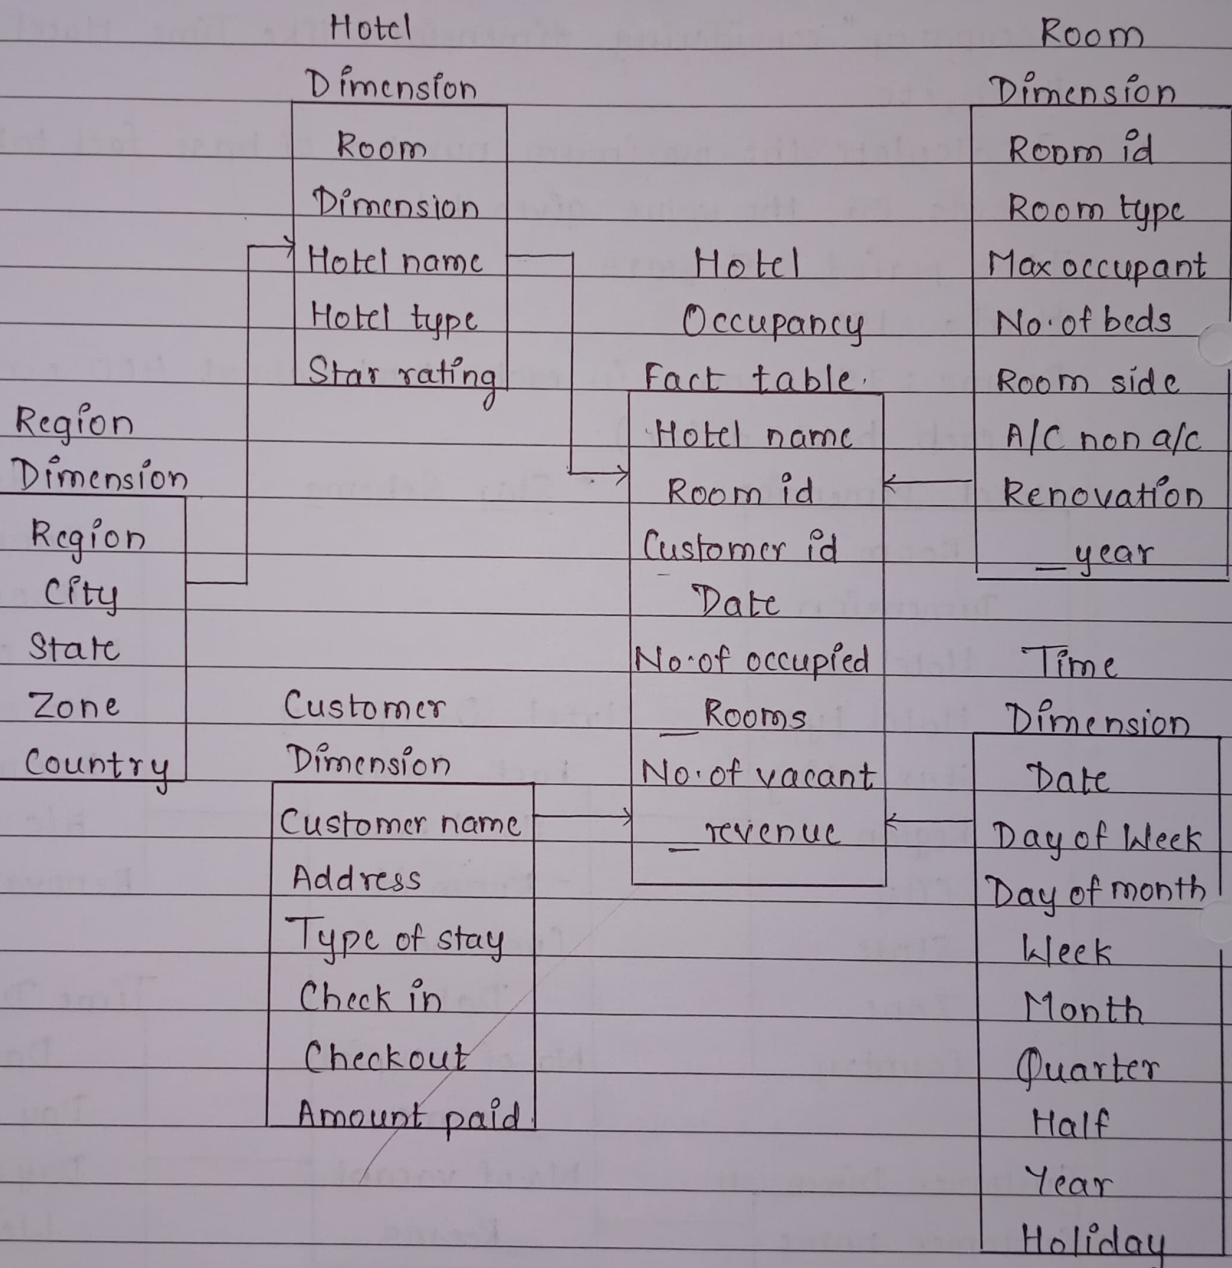 Hotel
Dimension
Room
Dimension
Hotel name
Hotel type
Star rating
Region
Dimension
Region
City
State
Zone
Country
Customer
Dimension
Customer name
Address
Type of stay
Check in
Checkout
Amount paid.
Hotel
Occupancy
Fact table.
Hotel name
Room id
Customer id
Date
No. of occupied
_ Rooms
No. of vacant
_ revenue
Room
Dimension
Room id
Room type
Max occupant
No. of beds
Room side
A/C non a/c
Renovation
_ year
Time
Dimension
Date
Day of Week
Day of month
Week
Month
Quarter
Half
Year
Holiday